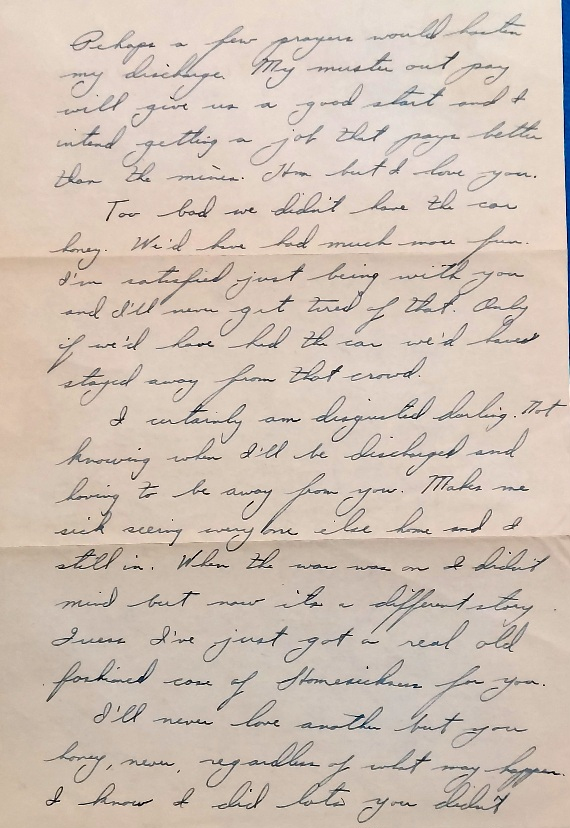 Pehaps a few prayers would hasten
my discharge. My muster out pay
will give us a good start and I
intend getting a job that pays better
than the mines. Hm but I love you.
Too bad we didn't have the car
honey. We'd have had much more fun.
I'm satisfied just being with you
and I'll never get tired of that. Only
if we'd have had the car we'd have
stayed away from that crowd.
I certainly am disgusted darling. Not
knowing when I'll be discharged and
having to be away from you. Makes me
sick seeing everyone else home and I
still in. When the war was on I didn't
mind but now its a different story.
Guess I've just got a real old
fashined case of Homesickness for you.
I'll never love another but you
honey, never, regardless of what may happen.
I know I did lots you didn't